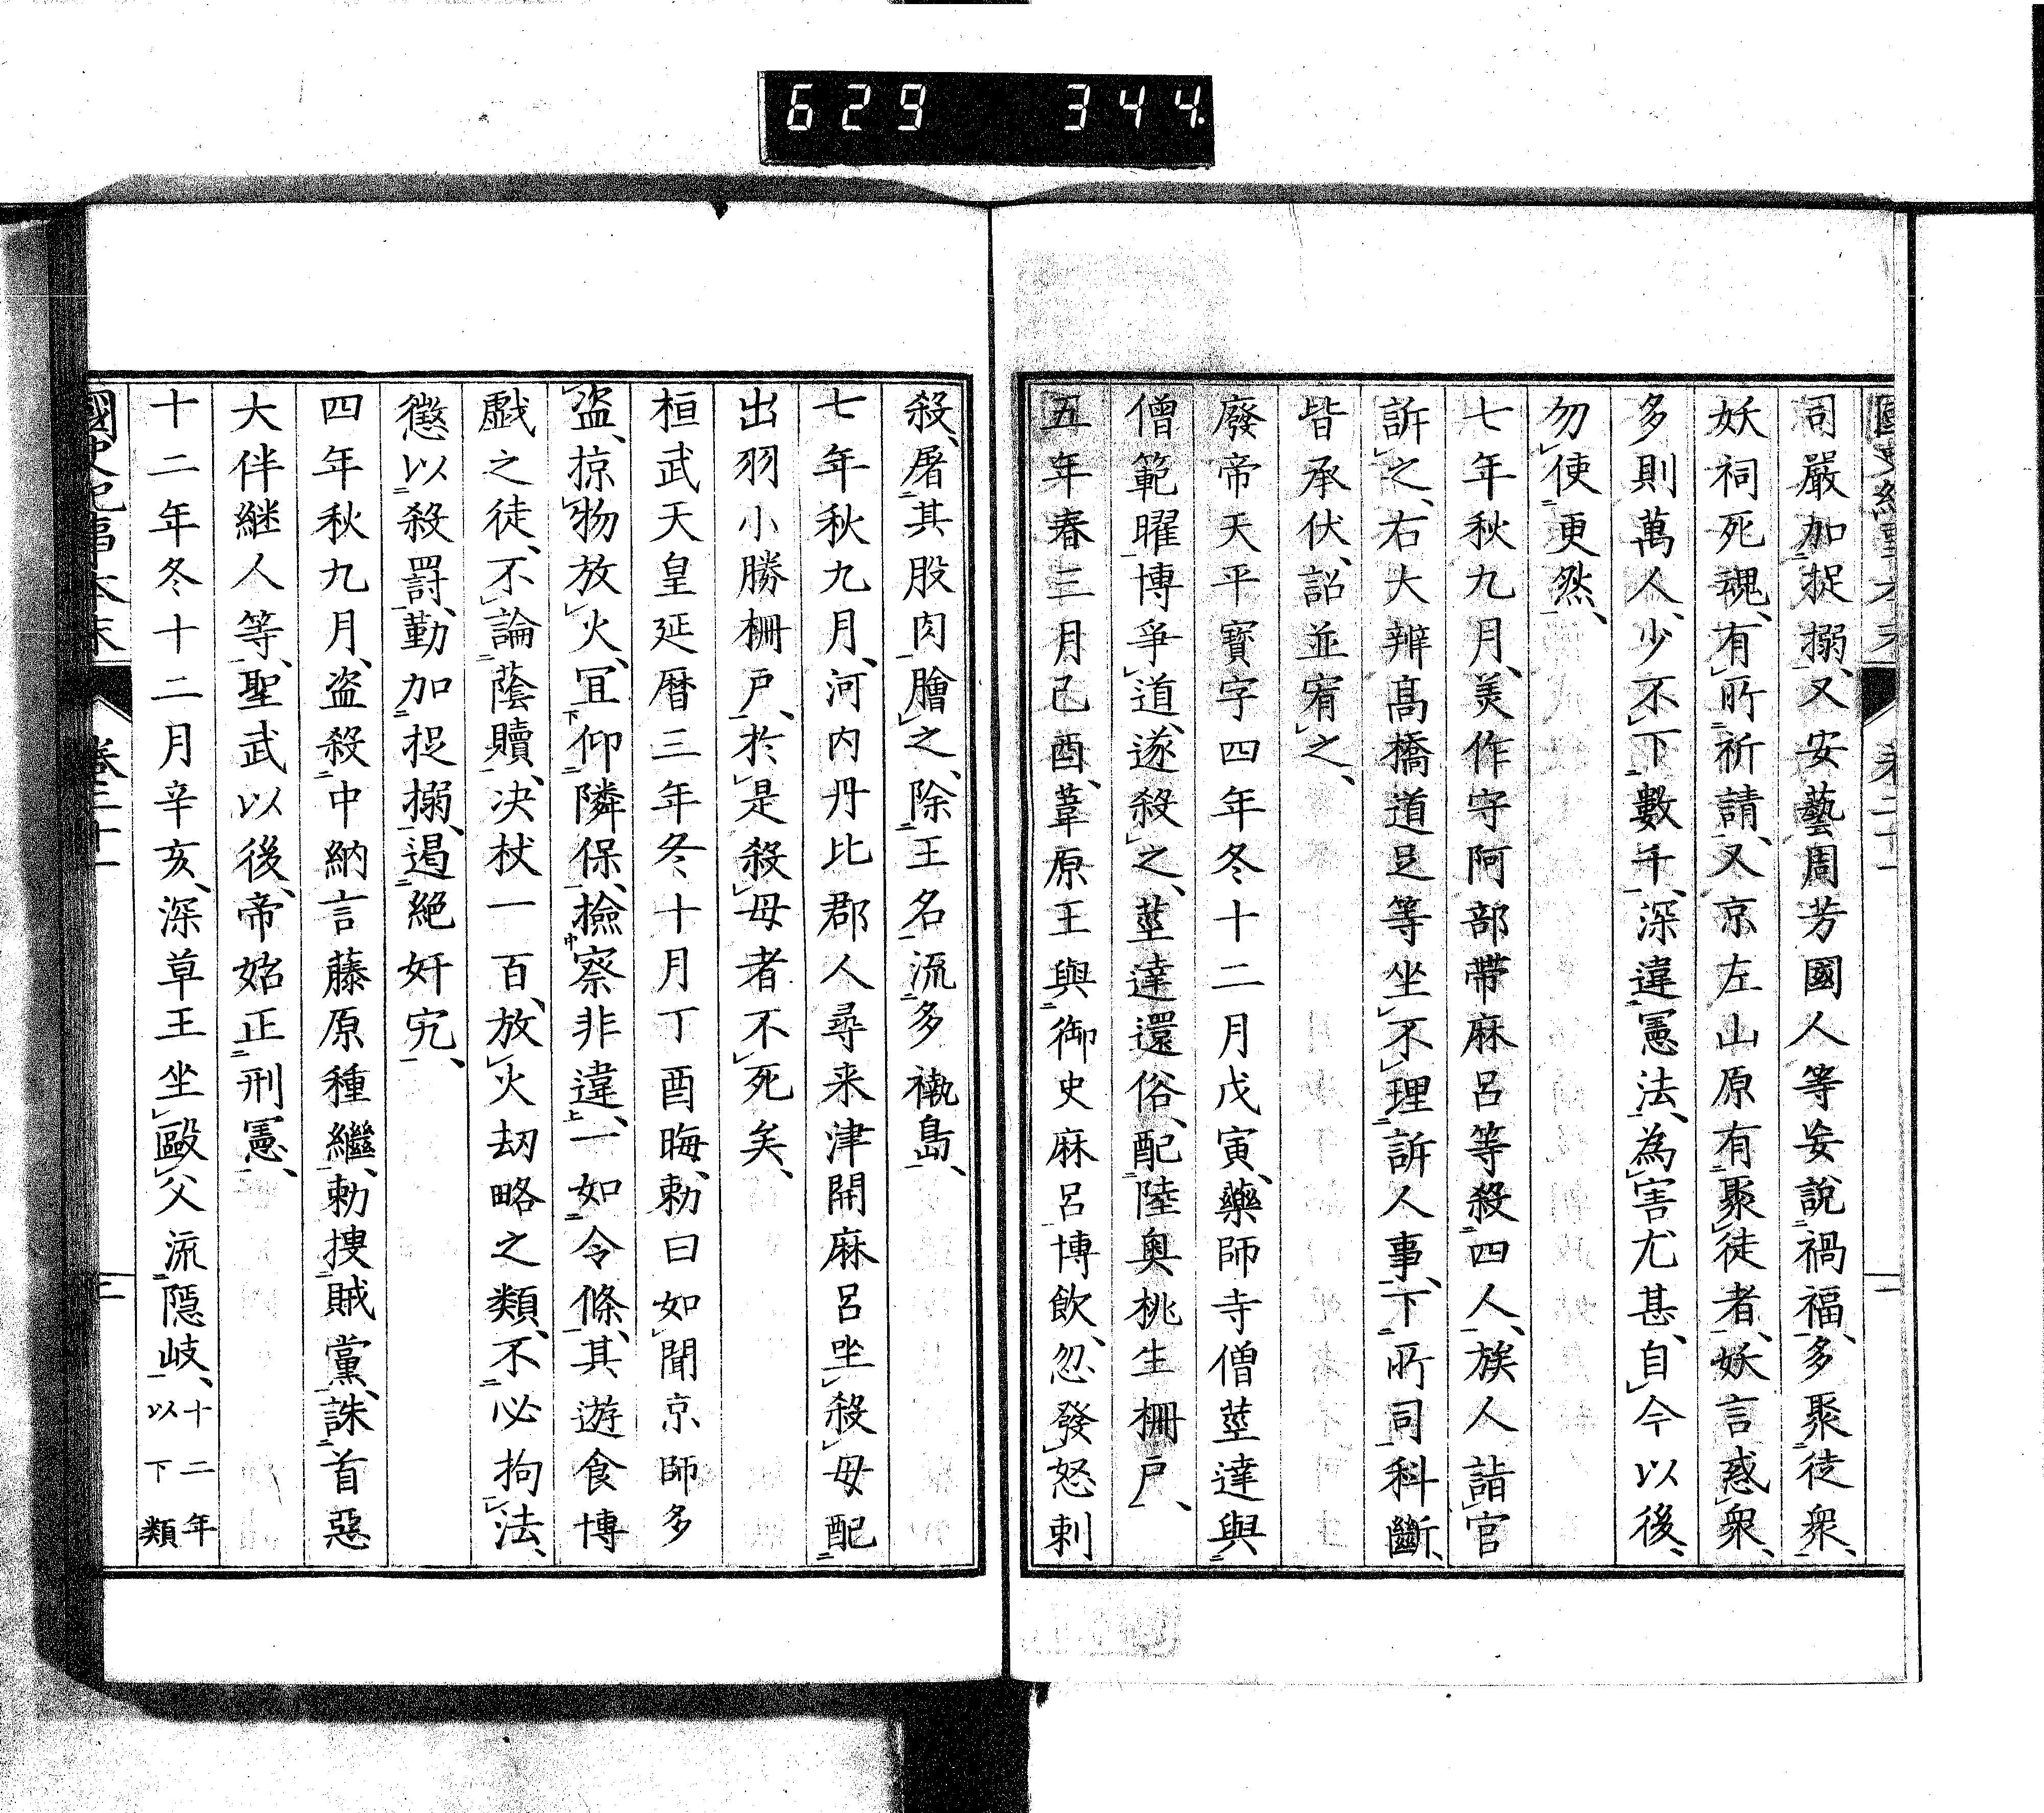 629 344
司嚴加捉搦、又安藝周芳國人等妄說禍福、多聚徒衆、
妖祠死魂、有所祈請、又京左山原有聚徒者、妖言惑衆、
多則萬人、少不下數千、深違憲法、為害尤甚、自今以後、
勿使更然、
七年秋九月、美作守阿部帶麻呂等殺四人、族人詣官
訴之、右大辨髙橋道足等坐不理訴人事、下所同科斷、
皆承伏、詔並宥之、
廢帝天平寶字四年冬十二月戊寅、藥師寺僧莖達與
僧範曜博爭道、遂殺之、莖達還俗、配陸奥桃生柵戸、
五年春三月己酉、葦原王與御史麻呂博飲、忽發怒刺
殺、屠其股肉膾之、除王名流多褹島、
七年秋九月、河内丹比郡人尋来津開麻呂坐殺母配
出羽小勝柵戸、於是殺母者不死矣、
桓武天皇延暦三年冬十月丁酉晦、勅曰如聞京師多
盗、掠物放火、宜仰隣保、撿察非違、一如令條、其遊食博
戯之徒、不論蔭贖、决杖一百、放火刼略之類、不必拘法、
懲以殺罰、勤加捉搦、遏絶奸宄、
四年秋九月、盗殺中納言藤原種繼、勅捜賊黨、誅首惡
大伴継人等、聖武以後、帝始正刑憲、
十二年冬十二月辛亥、深草王坐毆父流隠岐、十二年
以下類
國史紀事本末 卷三十一